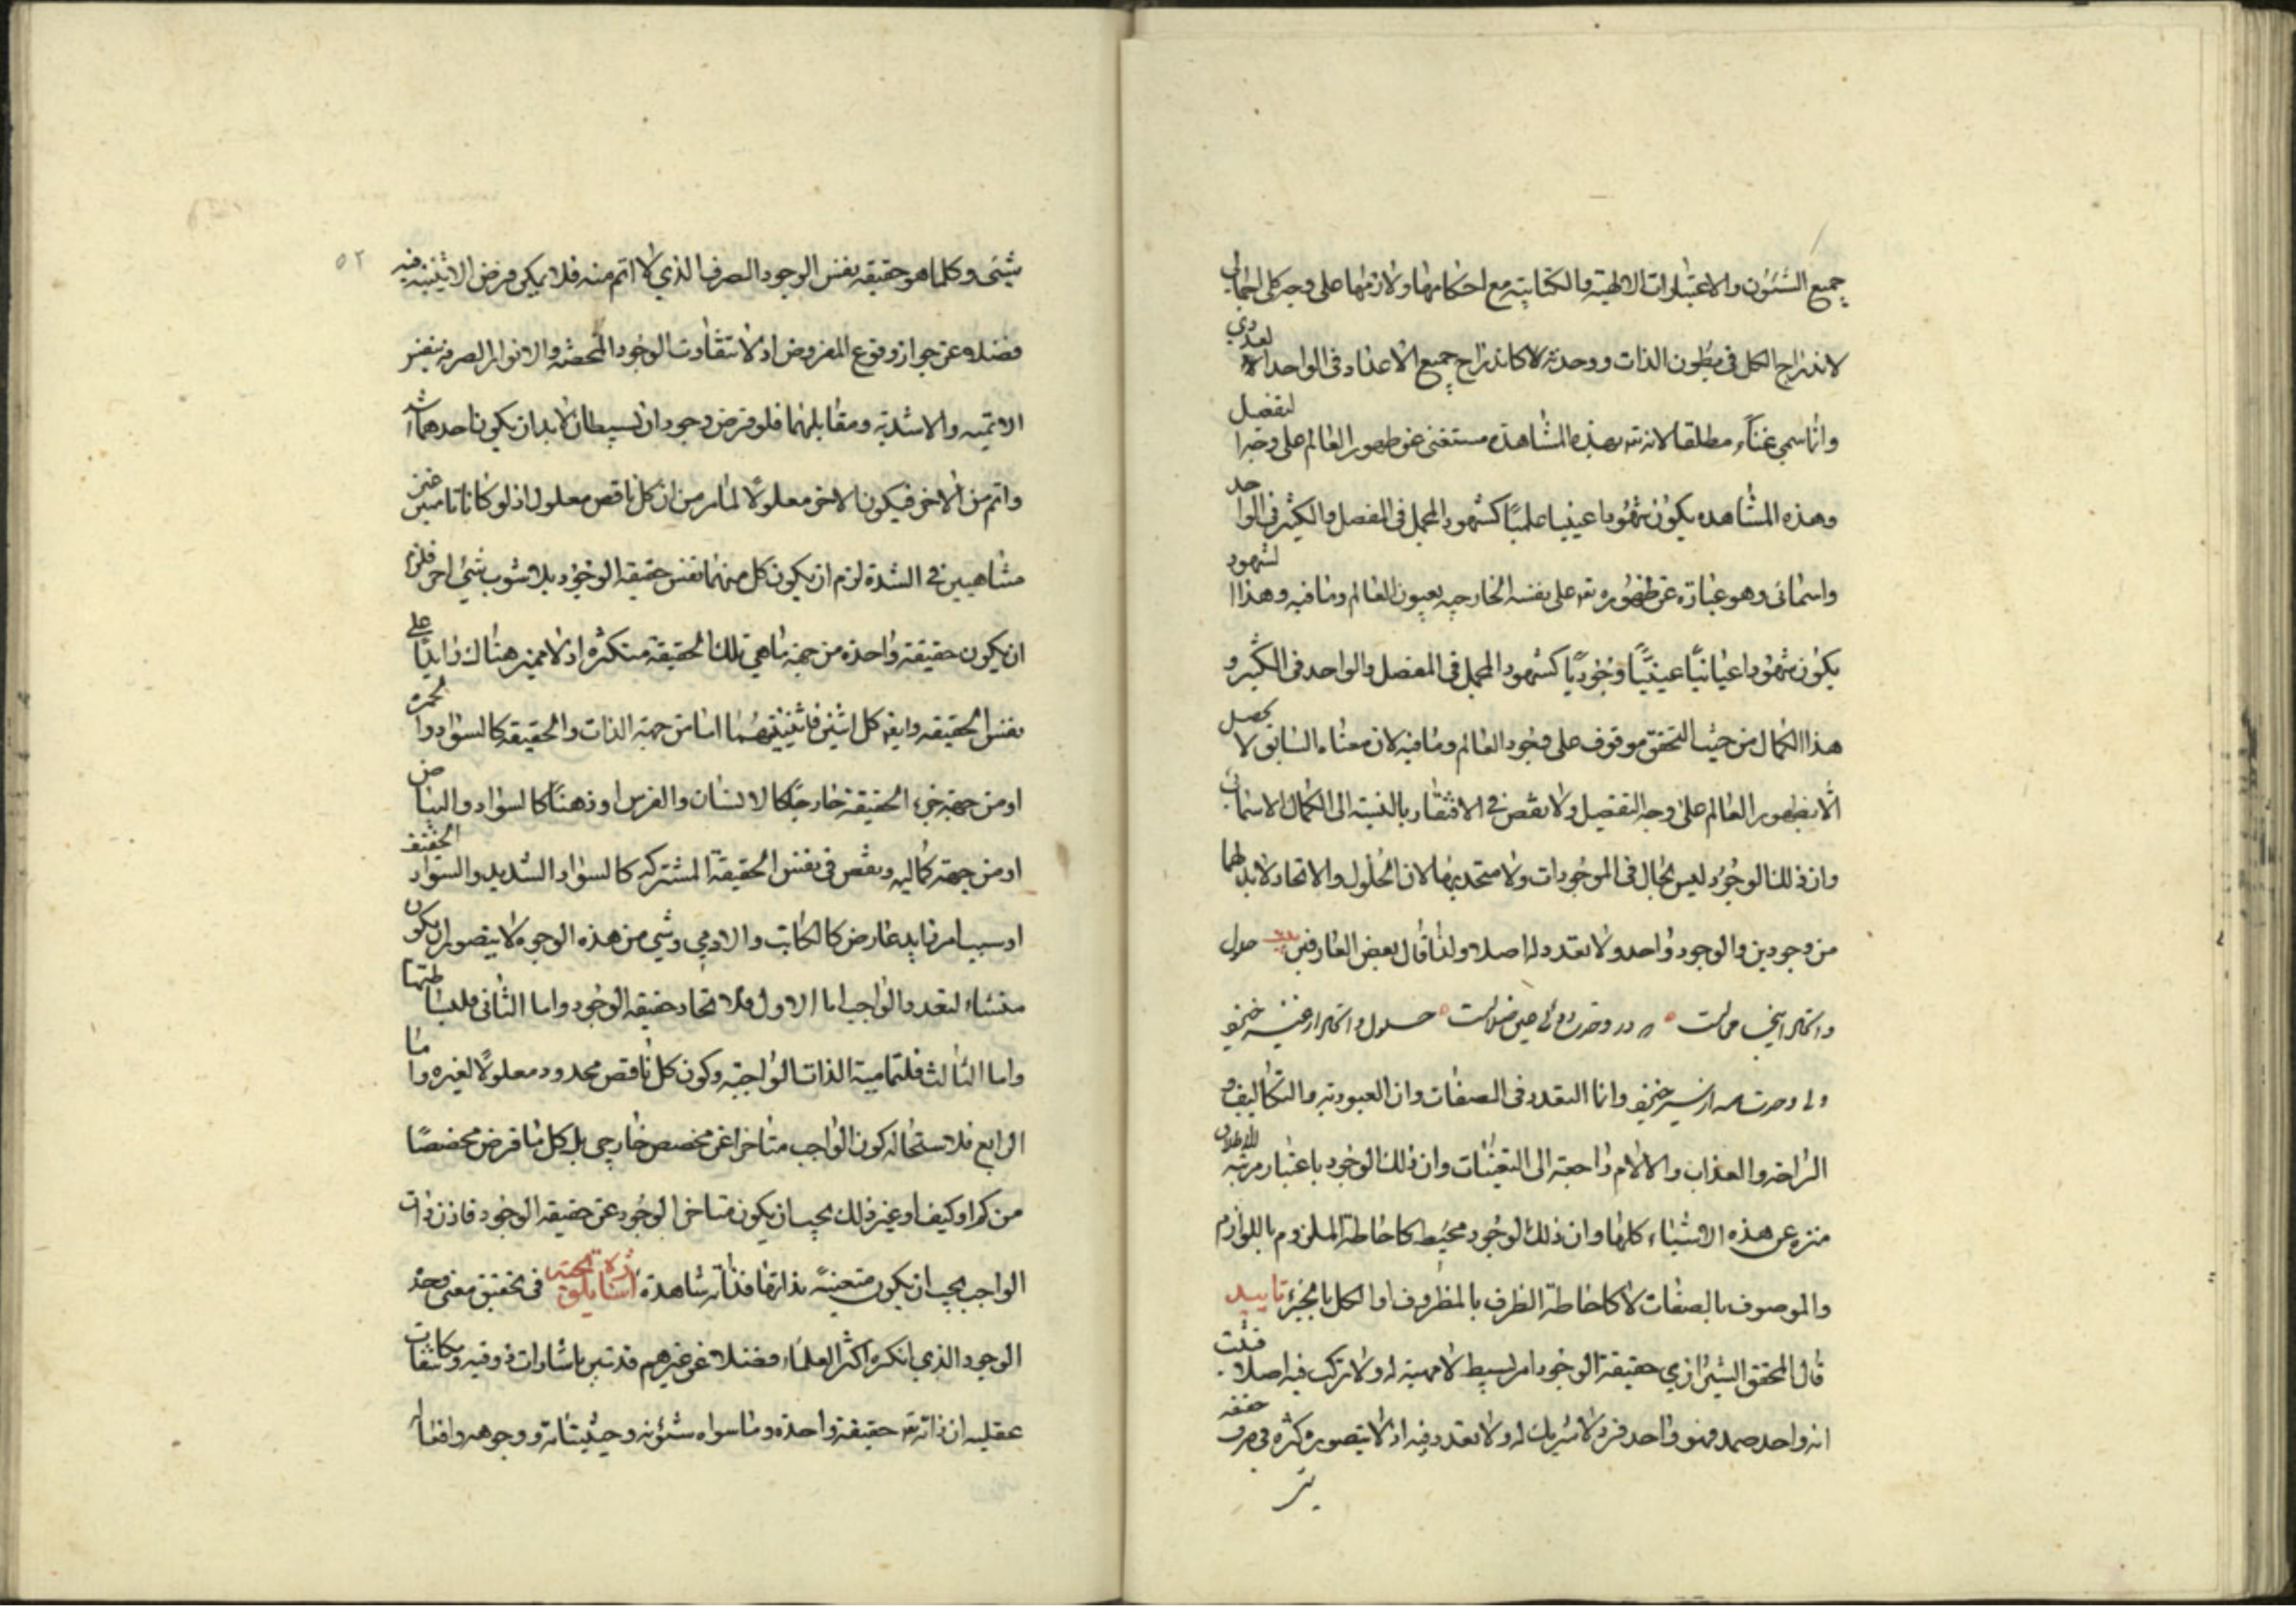 جميع الشئون والاعتبارات الالهية والكيانية مع احكامها ولازمها على وجه كلي اجمالي
لاندراج الكل في بطون الذات ووحدته لا كاندراج جميع الاعداد في الواحد العددي
وانما سمي غناء مطلقا لانه تعه بهذه المشاهدة مستغنى عن ظهور العالم على وجه التفصل
وهذه المشاهده يكون شهودا عينيا علميا كشهود المجمل في المفصل والكثير في الواحد
واسمائى وهو عبارة عن ظهوره تعه على نفسه الخارجيه بعيون العالم وما فيه وهذا الشهود
يكون شهودا عيانيا عينيا وجوديا كشهود المجمل في المفصل والواحد في الكثير و
هذا الكمال من حيث التحقق موقوف على وجود العالم وما فيه لان معناه السابق لا يحصل
الا بظهور العالم على وجه التفصيل ولا نقص في الافتقار بالنسبة الى الكمال الاسمائى
وان ذلك الوجود ليس بحال في الموجودات ولا متحد بها لان الحلول والاتحاد لابد لهما
من وجودين والوجود واحد ولا تعدد له اصلا ولذا قال بعض العارفين حلول
واتحاد اينجا محالست كه در وحدت دوئى عين ضلالست حلول واتحاد از غير خيزد
ولى وحدت همه از سير خيزد وانما التعدد في الصفات وان العبودية والتكاليف و
الراحة والعذاب والالام راجعة الى التعينات وان ذلك الوجود باعتبار مرتبة الاطلاق
منزه عن هذه الاشياء كلها وان ذلك الوجود محيط كاحاطة الملزوم باللوازم
والموصوف بالصفات لا كاحاطة الظرف بالمظروف او الكل بالجزء تاييد
قال المحقق الشيرازي حقيقة الوجود امر بسيط لا مهية له ولا تركب فيه اصلا فثبت
انه واحد صمد فهو واحد فرد لا شريك له ولا تعدد فيه اذ لا يتصور كثرة في صرف حقيقة
شئ
٥٢
شئى وكلما هو حقيقه نفس الوجود الصرف الذي لا اتم منه فلا يمكن فرض الاثنينيه فيه
فضلا عن جواز وقوع المفروض اذ لا تتفاوت الوجود المحضه والانوار الصرفه بغير
الاتميه والاشديه ومقابلهما فلو فرض وجودان بسيطان لابد ان يكون احدهما اشد
واتم من الاخر فيكون الاخر معلولا لما مر من ان كل ناقص معلول اذ لو كانا تامين غير
متناهيين في الشدة لزم ان يكون كل منهما نفس حقيقة الوجود بلا شوب شئ اخر فلزم
ان يكون حقيقة واحدة من جهة ما هي تلك الحقيقة متكثرة اذ لا مميز هناك زايدا على
نفس الحقيقه وايضه كل اثنين فاثنينيتهما اما من جهة الذات والحقيقه كالسواد والحمرة
او من جهة جزء الحقيقة خارجا كالانسان والفرس او ذهنا كالسواد والبياض
او من جهة كماليه ونقص في نفس الحقيقة المشتركه كالسواد الشديد والسواد الضعيف
او سبب امر زايد عارض كالكاتب والامي وشي من هذه الوجوه لا يتصور ان يكون
منشاء لتعدد الواجب اما الاول فلاتحاد حقيقة الوجود واما الثانى فلبساطتها
واما الثالث فلتمامية الذات الواجبة وكون كل ناقص محدود معلولا لغيره واما
الرابع فلاستحاله كون الواجب متاخرا عن مخصص خارجى بل كل ما فرض مخصصا
من كم او كيف او غير ذلك يجب ان يكون متاخر الوجود عن حقيقه الوجود فاذن ذات
الواجب يجب ان يكون متعينة بذاتها فذاته شاهدة في تحقيق معنى وحدة
الوجود الذي انكره اكثر العلماء فضلا عن غيرهم قد تبين باشارات ذوقيه ومكاشفات
عقليه ان ذاته تعه حقيقة واحدة وما سواه شئونه وحيثياته ووجوهه وافعاله